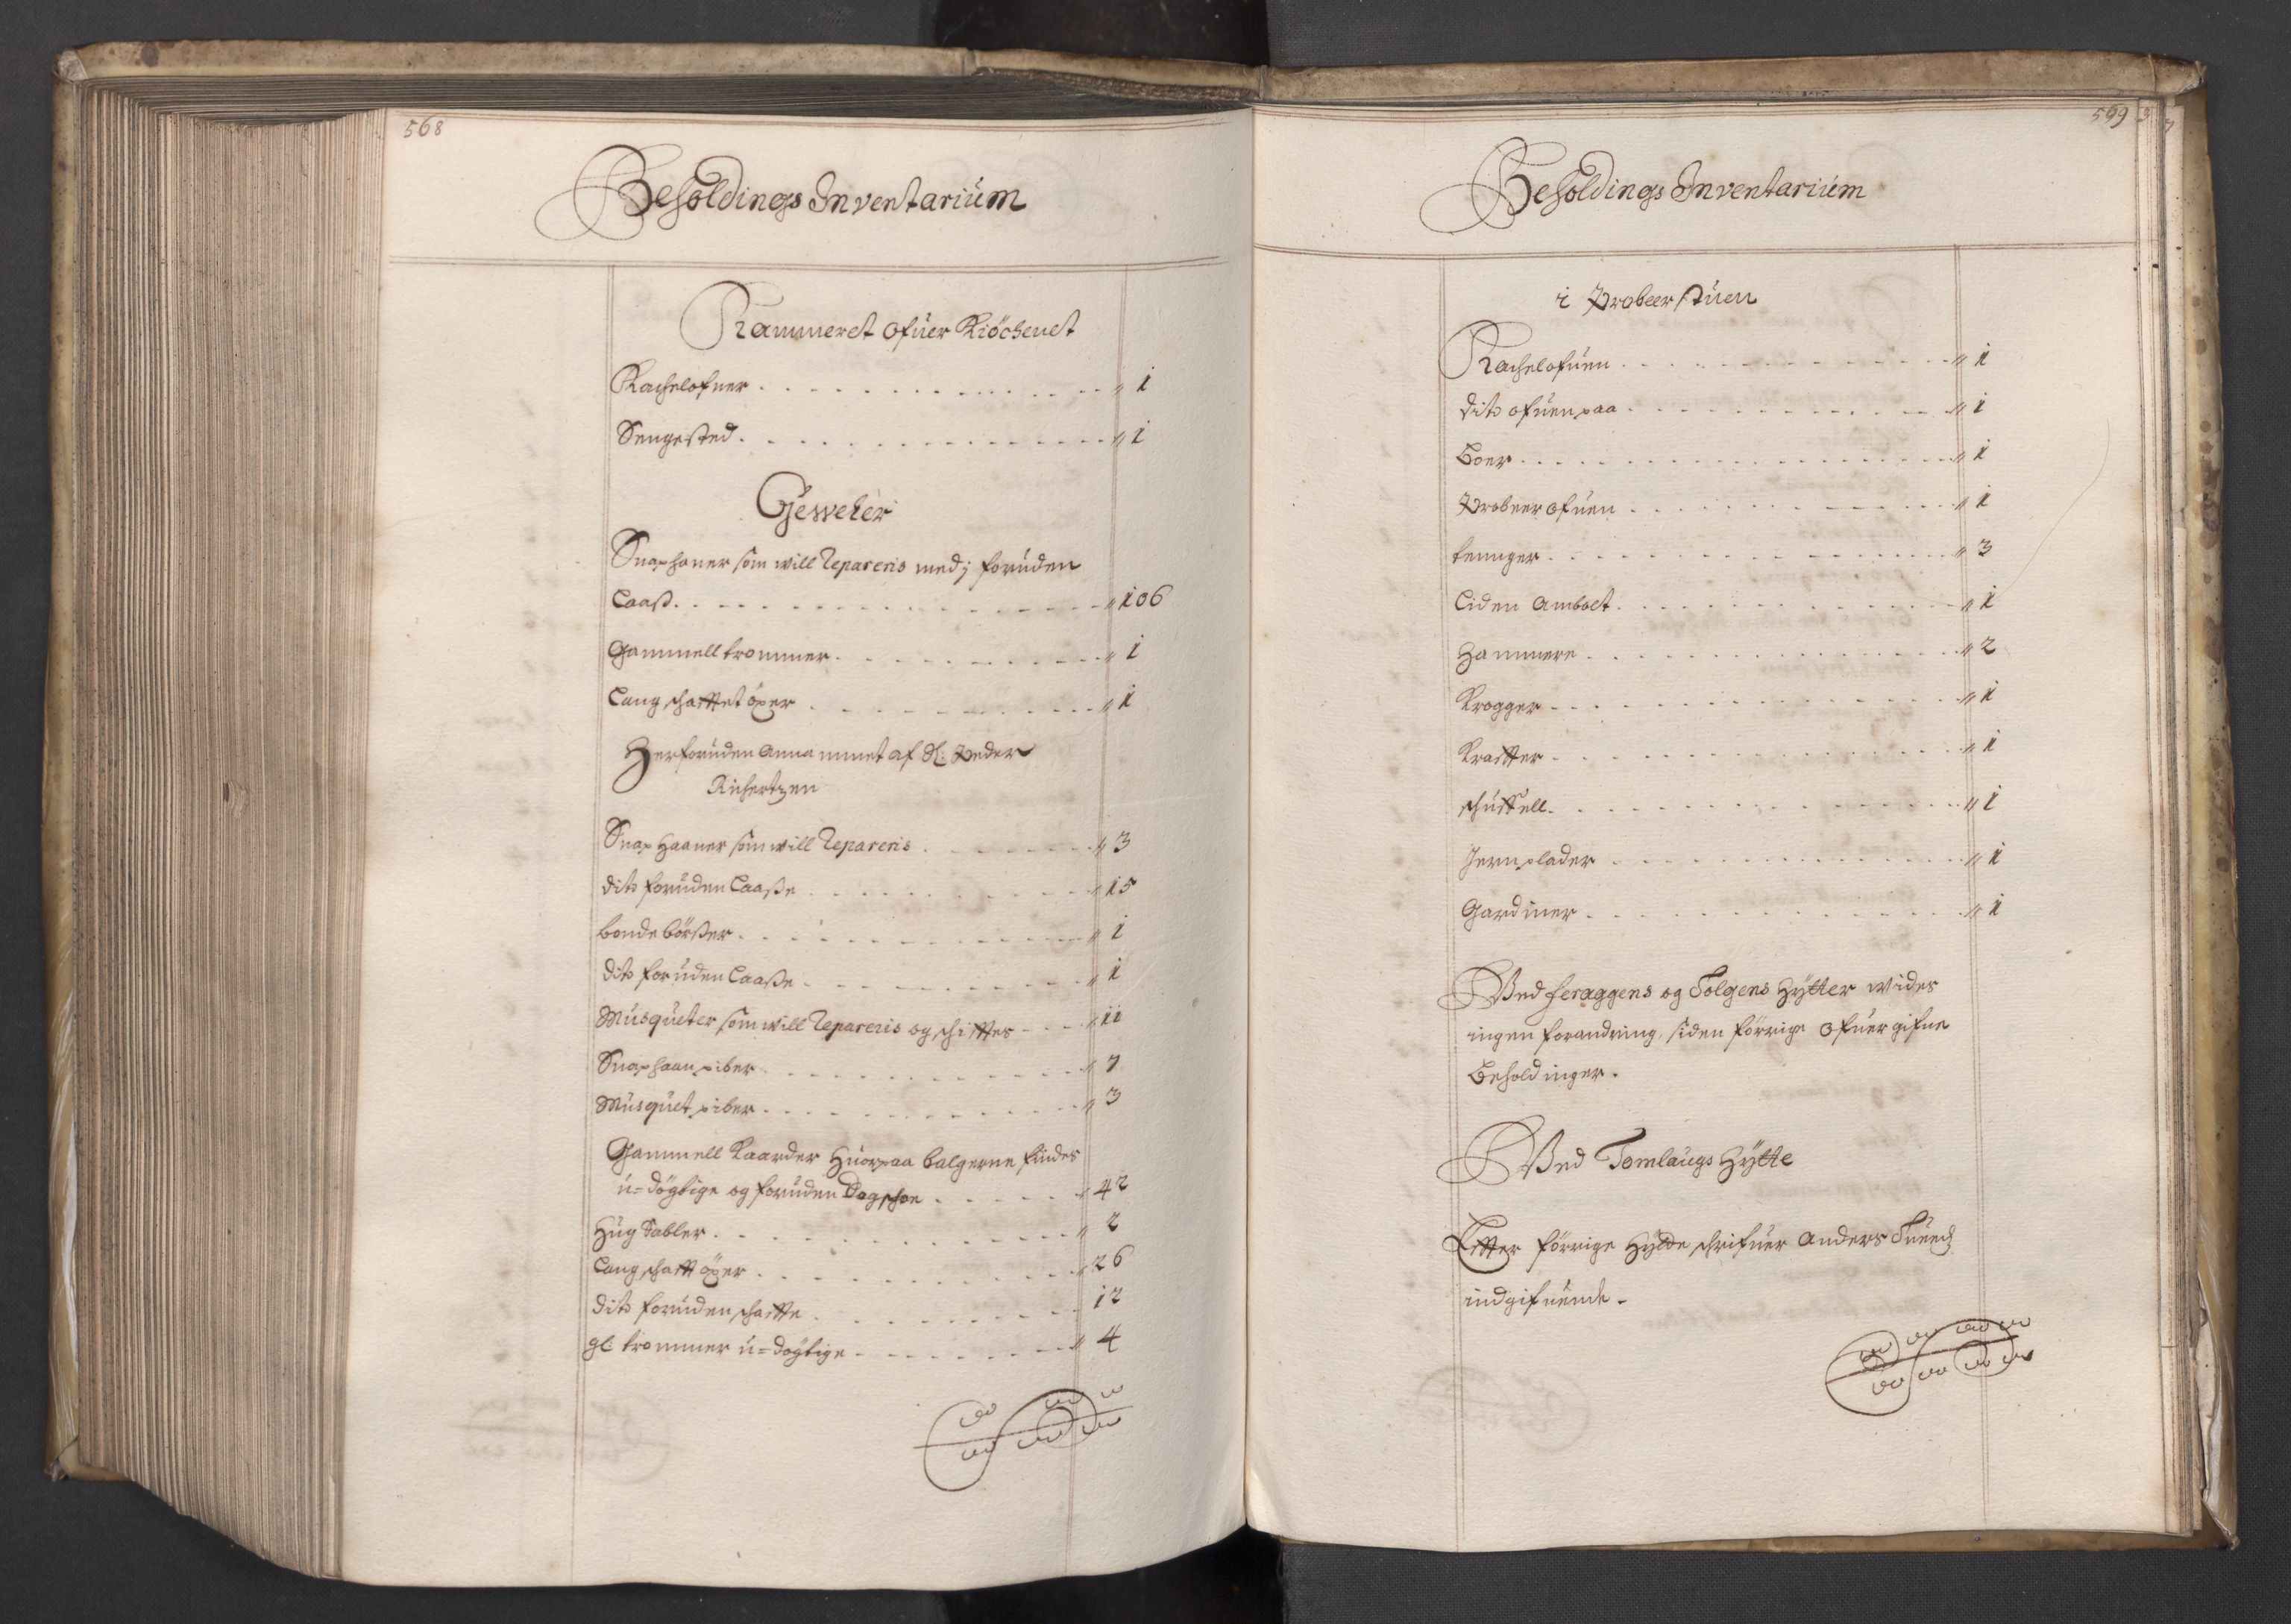 568
Beholdings Inventarium
Kammeret ofuer Kiöchenet
Kachelofner " 1
Sengested " 1
Gewehr
Snaphaner som will Repareris med j foruden
Laaß " 106
Gammell trommer " 1
Lang schafftet öxer " 1
Herforuden Annammet af Sl: Peder
Richertzen
Snap Haaner som will Repareris " 3
dito foruden Laaße " 15
bonde bößer " 1
dito foruden Laaße " 1
Musqueter som will Repareris og schifftes " 11
Snaphaan piber " 7
Musquet piber " 3
Gammell Kaarder Huorpaa balgerne findes
u=dögtige og foruden Dogschoe " 42
Hug Sabler " 2
Lang schafft öxer " 26
dito foruden schaffte 12
gl: trommer u=dögtige " 4
569
Beholdings Inventarium
i Probeer stuen
Kachelofuen " 1
dito ofuen paa " 1
Boer " 1
Probeer ofuen " 1
tennger " 3
Liden Ambolt " 1
Hammere " 2
Krogger " 1
Kratter " 1
schuffell " 1
Jernplader " 1
Gardiner " 1
Wed feraggens og Tolgens Hytter wides
ingen forandring, siden förrige ofuergifne
Beholdinger.
Wed Tomlaugs Hytte
Effter förrige Hytte schrifuer Anders
indgifuende -